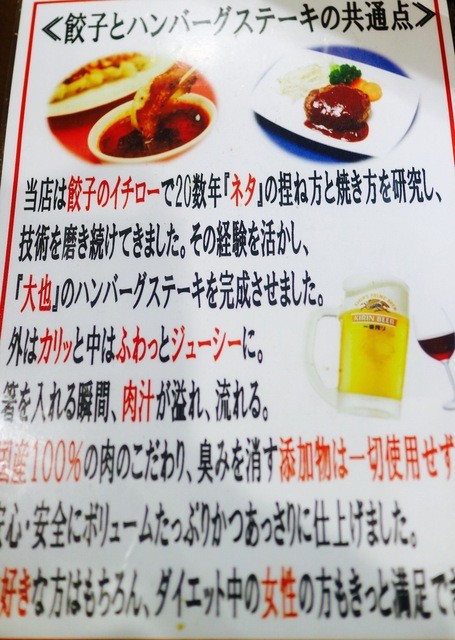 ≪餃子とハンバーグステーキの共通点≫
当店は餃子のイチローで20数年『ネタ』の捏ね方と焼き方を研究し、
技術を磨き続けてきました。その経験を活かし、
『大也』のハンバーグステーキを完成させました。
外はカリッと中はふわっとジューシーに。
箸を入れる瞬間、肉汁が溢れ、流れる。
国産100%の肉のこだわり、臭みを消す添加物は一切使用せず
安心・安全にボリュームたっぷりかつあっさりに仕上げました。
好きな方はもちろん、ダイエット中の女性の方もきっと満足でき
KIRIN BEER
一番搾り